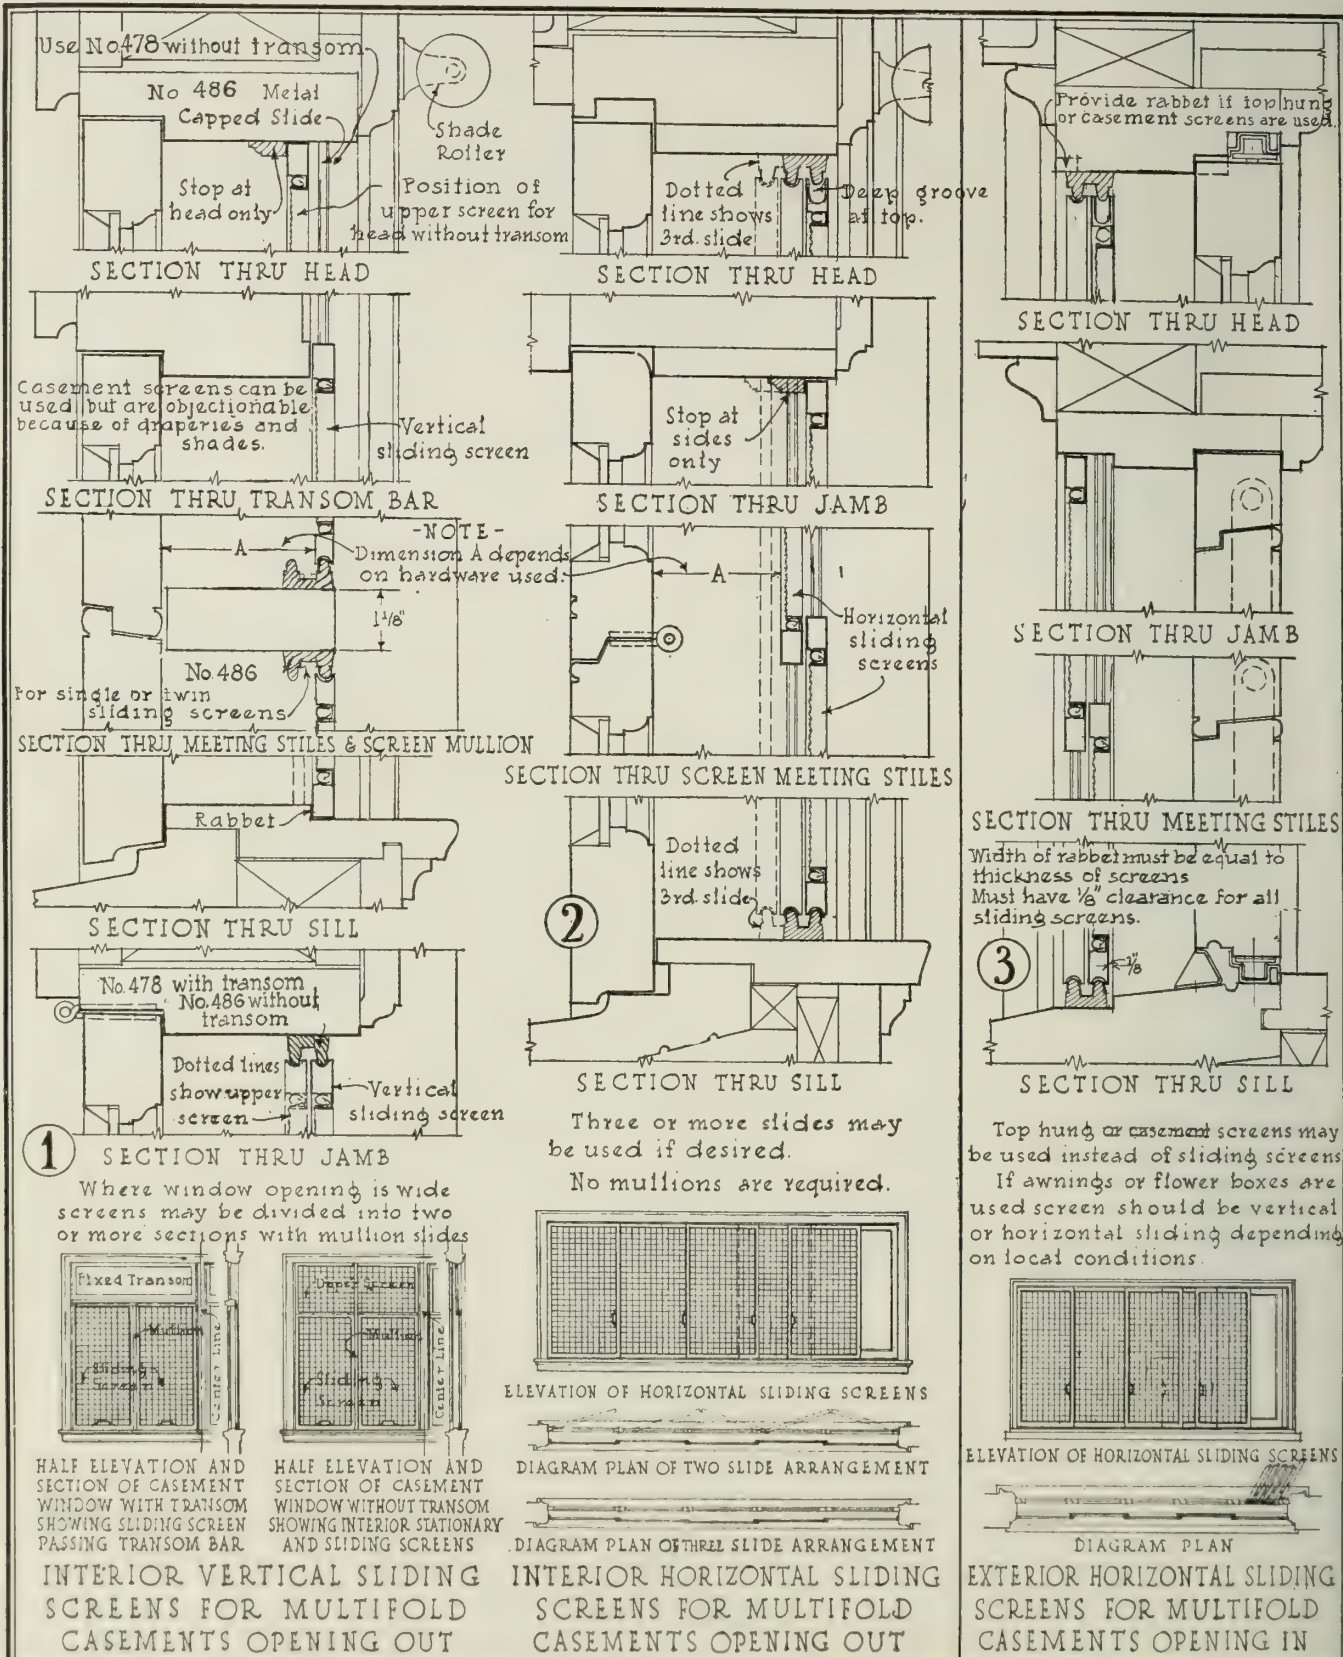 Use No.478 without transom
No 486 Metal
Capped Slide
Shade
Roller
Stop at
head only
Position of
upper screen for
head without transom
SECTION THRU HEAD
Casement screens can be
used but are objectionable
because of draperies and
shades.
Vertical
sliding screen
SECTION THRU TRANSOM BAR
-NOTE-
Dimension A depends
on hardware used.
A
1 1/8"
No.486
For single or twin
sliding screens
SECTION THRU MEETING STILES & SCREEN MULLION
Rabbet
SECTION THRU SILL
No.478 with transom
No.486 without
transom
Dotted lines
show upper
screen
Vertical
sliding screen
1
SECTION THRU JAMB
Where window opening is wide
screens may be divided into two
or more sections with mullion slides
Fixed Transom
Mullion
Sliding
Screen
Center Line
Upper Screen
Mullion
Sliding
Screen
Center Line
HALF ELEVATION AND
SECTION OF CASEMENT
WINDOW WITH TRANSOM
SHOWING SLIDING SCREEN
PASSING TRANSOM BAR
HALF ELEVATION AND
SECTION OF CASEMENT
WINDOW WITHOUT TRANSOM
SHOWING INTERIOR STATIONARY
AND SLIDING SCREENS
INTERIOR VERTICAL SLIDING
SCREENS FOR MULTIFOLD
CASEMENTS OPENING OUT
Dotted
line shows
3rd. slide
Deep groove
at top.
SECTION THRU HEAD
Stop at
sides
only
SECTION THRU JAMB
A
Horizontal
sliding
screens
SECTION THRU SCREEN MEETING STILES
Dotted
line shows
3rd. slide
2
SECTION THRU SILL
Three or more slides may
be used if desired.
No mullions are required.
ELEVATION OF HORIZONTAL SLIDING SCREENS
DIAGRAM PLAN OF TWO SLIDE ARRANGEMENT
DIAGRAM PLAN OF THREE SLIDE ARRANGEMENT
INTERIOR HORIZONTAL SLIDING
SCREENS FOR MULTIFOLD
CASEMENTS OPENING OUT
Provide rabbet if top hung
or casement screens are used.
SECTION THRU HEAD
SECTION THRU JAMB
SECTION THRU MEETING STILES
Width of rabbet must be equal to
thickness of screens
Must have 1/8" clearance for all
sliding screens.
3
1/8"
SECTION THRU SILL
Top hung or casement screens may
be used instead of sliding screens
If awnings or flower boxes are
used screen should be vertical
or horizontal sliding depending
on local conditions.
ELEVATION OF HORIZONTAL SLIDING SCREENS
DIAGRAM PLAN
EXTERIOR HORIZONTAL SLIDING
SCREENS FOR MULTIFOLD
CASEMENTS OPENING IN